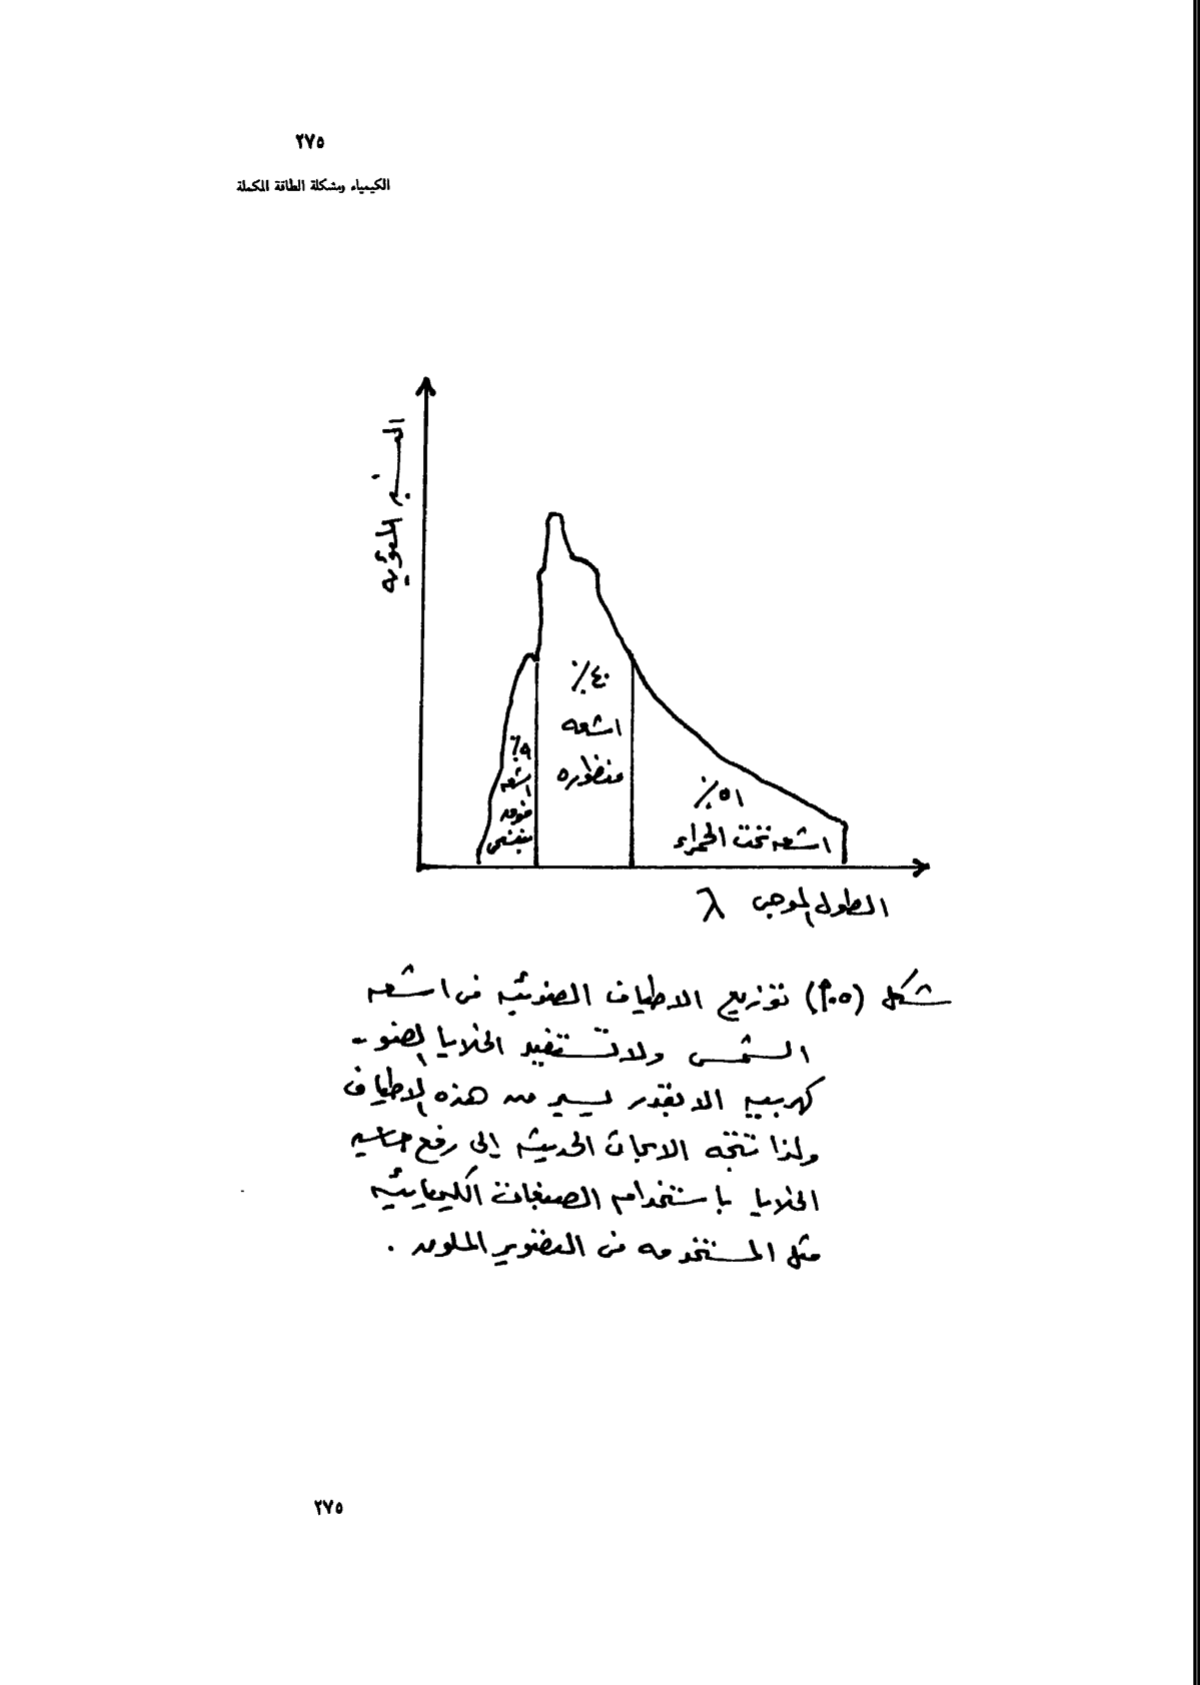 ٢٧٥
الكيمياء ومشكلة الطاقة المكملة
النسبه المئويه
٪٤٠
اشعه
منظوره
٪٩
اشعه
فوق
بنفسجي
٪٥١
اشعه تحت الحمراء
الطول الموجى λ
شكل توزيع الاطياف الضوئيه فى اشعه
الشمس ولا تستفيد الخلايا الضو-
كهربيه الا بقدر يسير من هذه الاطياف
ولذا تتجه الابحاث الحديثه إلى رفع حساسيه
الخلايا باستخدام الصبغات الكيميائيه
مثل المستخدمه فى التصوير الملون .
٢٧٥